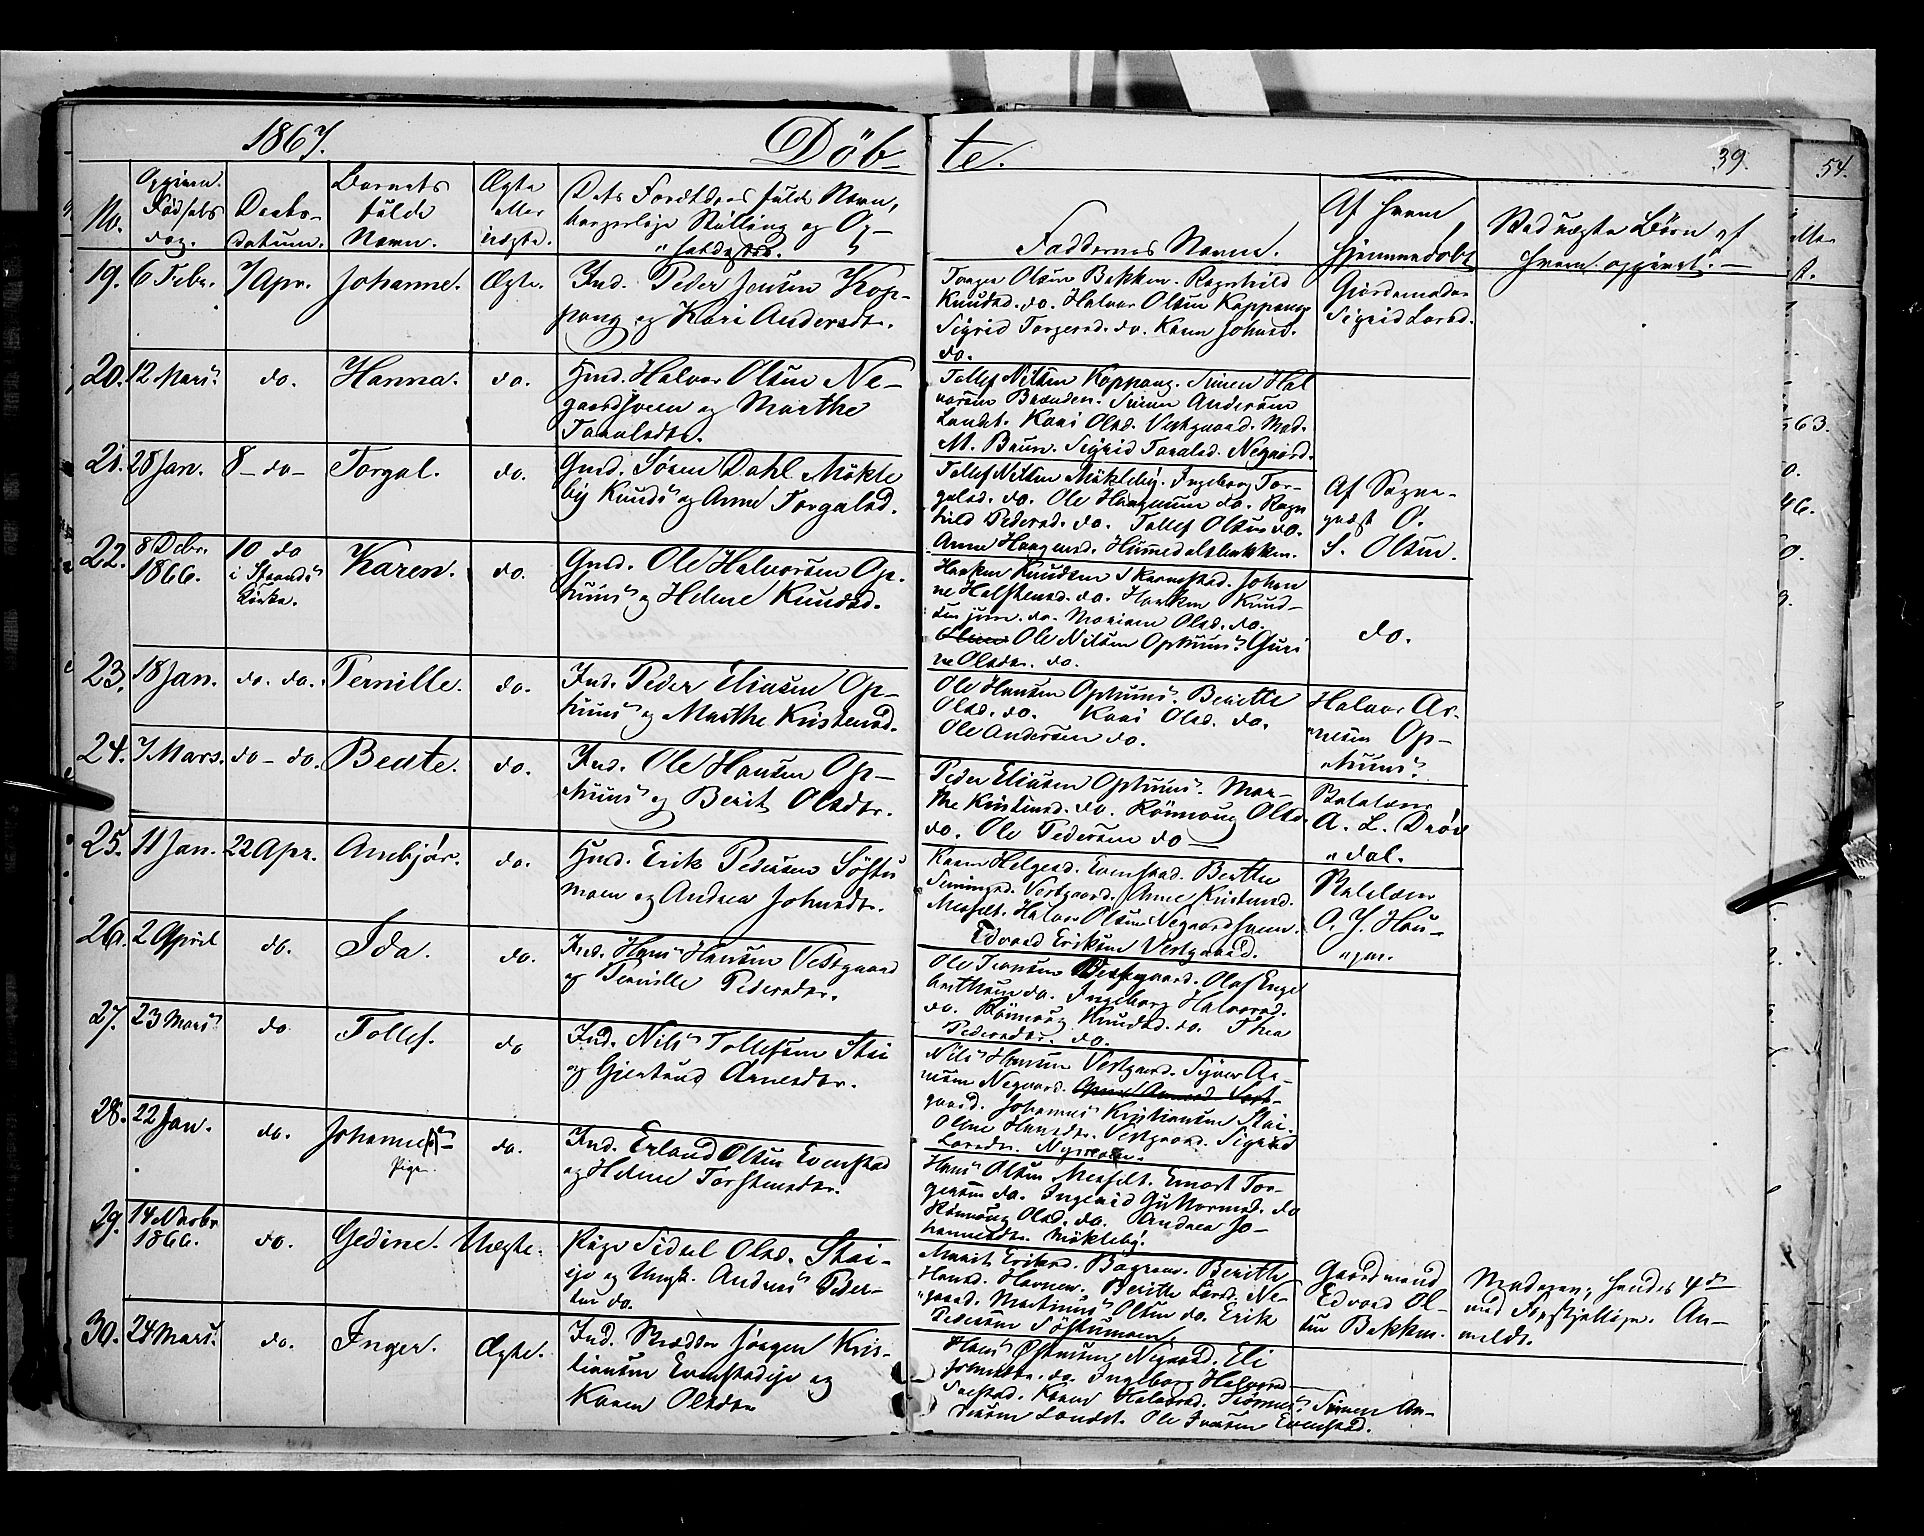 1867.
Döb-
te.
39.
54.
No.
Opgiven Födsels dag.
Daabs-datum.
Barnets fulde Navn.
Ægte eller uægte.
Dets Forældres fulde Navn, borgerlige Stilling og Op-
holdssted.
Faddernes Navne.
Af hvem hjemmedöbt
Ved uægte Börn af
hvem opgivet. —
19. 6 Febr. 7 Apr. Johanne. Ægte. Ind. Peder Jensen Kop-
pang og Kari Andersdtr.
Torger Olsen Bakken. Ragnhild
Knudsd. do. Halvor Olsen Koppang.
Sigrid Torgersd. do. Karen Johnsd.
do.
Gjordemoder
Sigrid Larsd.
20. 12 Mars. do. Hanna. do. Gmd. Halvor Olsen Ne-
gaardhoem og Marthe
Taralsdtr.
Tollef Nilsen Koppang. Simen Hal
vorsen Brænden. Simen Andersen
Landet. Kari Olsd. Vestgaard. Mad.
M. Bruun. Sigrid Taralsd. Negaard.
21. 28 Jan. 8 - do - Torgal. do. Gmd. Sören Dahl Mökle
by Kunds og Anne Torgalsd.
Tollef Nilsen Mökleby. Ingeborg Tor-
galsd. do. Ole Haagensen do. Ragn
hild Pedersd. do. Tollef Olsen do.
Anne Haagensd. Hummedalsbakken.
Af Sogne-
præst O.
S. Olsen.
22. 8 Debr. 1866. 10 do i Strands Kirke. Karen. do. Gmd. Ole Halvorsen Op-
huus og Helene Knudsd.
Haaken Knudsen Skarnstad. Johan
ne Halstensd. do. Haaken Knud-
sen jun. do. Mariam Olsd. do.
Ole Nilsen Ophuus. Guri
ne Olsdtr. do.
do.
23. 18 Jan. do. do. Pernille. do. Ind. Peder Eliasen Op-
huus og Marthe Kristensd.
Ole Hansen Ophuus. Berithe
Olsd. do. Kari Olsd. do.
Ole Andersen do.
Halvor Ar-
nesen Op-
huus.
24. 7 Mars. do - do. Beate. do. Ind. Ole Hansen Op-
huus og Berit Olsdtr.
Peder Eliasen Ophuus. Mar-
the Kristensd. do. Rönnoug Olsd.
do. Ole Pedersen do —
Skolelærer
A. L. Dröv
dal.
25. 11 Jan. 22 Apr. Anbjör. do. Gmd. Erik Pedersen Söstu
moen og Andrea Johnsdtr.
Karen Helgesd. Evenstad. Berthe
Simensd. Vestgaard. Anne Kristensd.
Messelt. Halvor Olsen Negaardhoem.
Edvard Eriksen Vestgaard.
Skolelærer
O. J. Hau-
gen.
26. 2 April do. Ida. do. Ind. Hans Hansen Vestgaard
og Pernille Pedersdtr.
Ole Iversen Vestgaard. Olaf Enge
brethsen do. Ingeborg Halvorsd.
do. Rönnoug Knudsd. do. Thea
Pedersdtr. do.
27. 23 Mars. do Tollef. do Ind. Nils Tollefsen Stai
og Gjertrud Arnesdtr.
Nils Hansen Vestgaard. Syver Ar-
nesen Negaard. Vest-
gaard. Johannes Kristiansen Stai.
Oline Hansdtr. Vestgaard. Sigrid
Larsdtr. Nyseter.
28. 22 Jan. do. Johanne Pige. do. Ind. Erland Olsen Evenstad
og Helene Torstensdtr.
Hans Olsen Messelt. Emort Tor-
gersen do. Ingerid Guttormsd. do
Rönnoug Olsd. do. Andrea Jo-
hannesdtr. Mökleby.
29. 14 Novbr 1866. do. Gedine. Uægte. Pige Sidsel Olsd. Stai-
eje og Ungk. Anders Peder-
sen do.
Marit Eriksd. Bagroen. Berithe
Hansd. Havnen. Berithe Larsd. Ne-
gaard. Martinus Olsen do. Erik
Pedersen Söstumoen.
Gaardmand
Edvard Ol-
sen Bakken.
Moderen, hendes 4de
med Forskjellige. An-
meldt.
30. 24 Mars. do. Inger. Ægte. Ind. Skrædder Jörgen Kris-
tiansen Evenstadeje og
Karen Olsdtr.
Hans Östensen Negaard. Eli
Johnsdtr. do. Ingeborg Halvorsd.
Halvorsd. Simen An-
dersen Landet. Ole Iversen Evenstad.